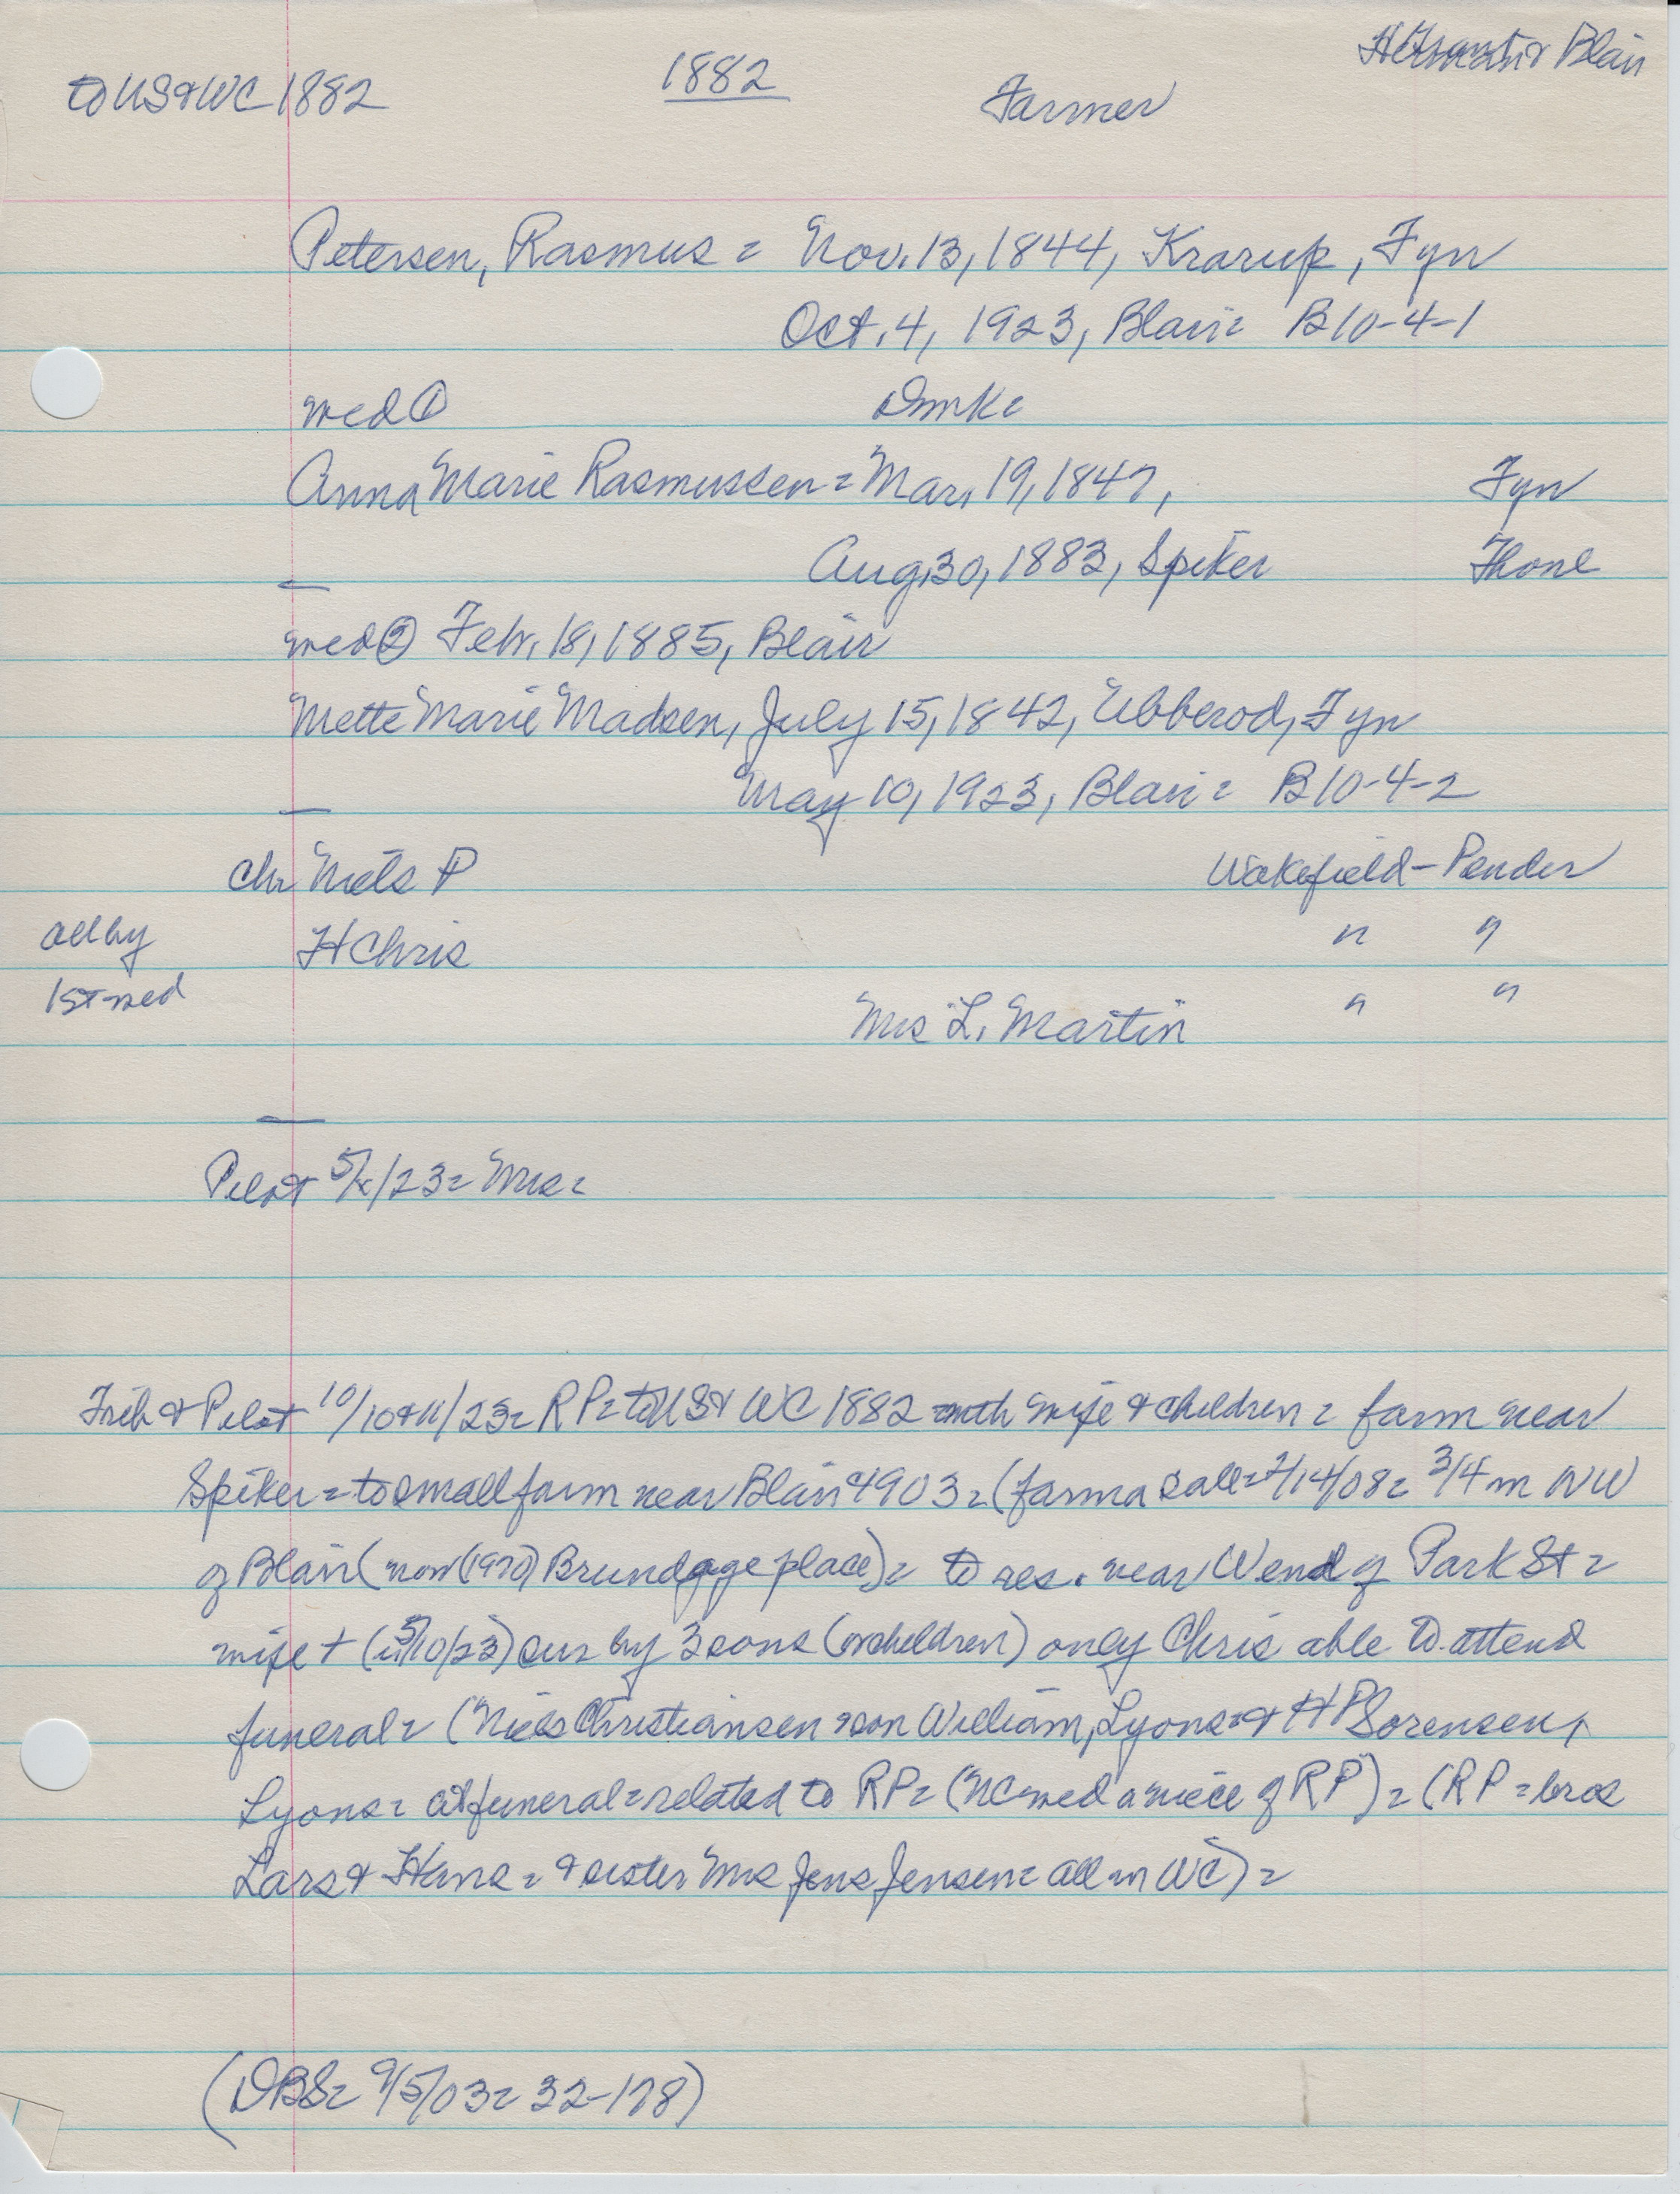 Blair
to US & WC 1882 1882 Farmer
Petersen, Rasmus = Nov. 13, 1844, Krarup, Fyn
Oct. 4, 1923, Blair = B10-4-1
med ① Dmk =
Anna Marie Rasmussen = Mar. 19, 1847, Fyn
Aug. 30, 1883, Spiker Thone
med ② Febr. 18, 1885, Blair
Mette Marie Madsen, July 15, 1842, Ebberod, Fyn
May 10, 1923, Blair = B10-4-2
Chr Niels P Wakefield - Pender
all by H Chris " "
1st med Mrs L. Martin " "
Pilot 5/x/23 = Mrs =
Trib & Pilot 10/10 & 11/23 = RP = to US & WC 1882 with wife & children = farm near
Spiker = to small farm near Blair 1903 = (farm a sale = 2/14/08 = 3/4 m NW
of Blair (now (1970) Brundgage place) = to res. near W end of Park St =
wife + (5/10/23) sur by 3 sons (or children) only Chris able to attend
funeral = (Niels Christiansen & son William, Lyons = & H P Sorensen,
Lyons = at funeral = related to RP = (NC med a niece of RP) = (RP = bros
Lars & Hans = & sister Mrs Jens Jensen = all in WC) =
(DBS = 9/5/03 = 32-178)